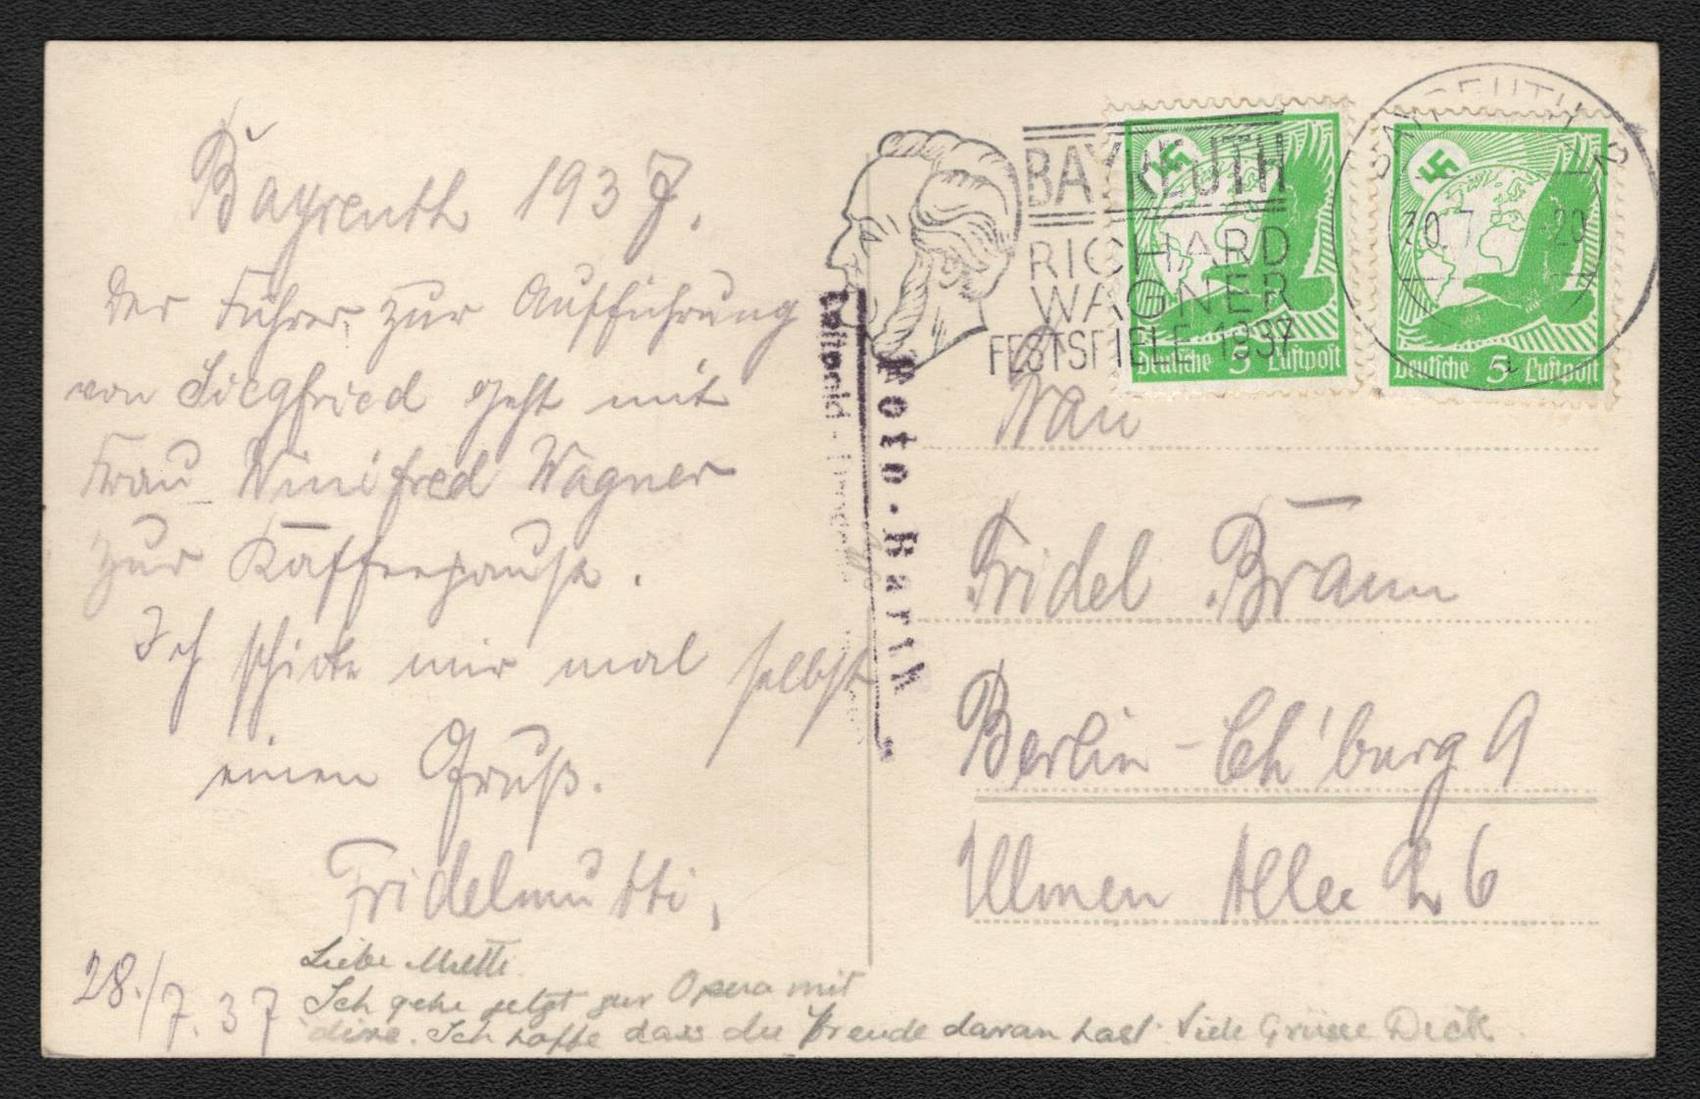 Bayreuth 1937.
Der Führer zur Aufführung
von Siegfried geht mit
Frau Winifred Wagner
zur Kaffeepause.
Ich schicke mir mal selbst
einen Gruß.
Fridelmutti,
28./7.37
Liebe Mutti
Ich gehe jetzt zur Opera mit
dire. Ich hoffe dass du Freude daran hast. Viele Grüsse Dick
Foto-Barth
BAYREUTH
RICHARD
WAGNER
FESTSPIELE 1937
BAYREUTH 2
30.7. 20
a
Deutsche 5 Luftpost
Deutsche 5 Luftpost
Frau
Fridel Braun
Berlin-Ch'burg 9
Ulmen Allee 6